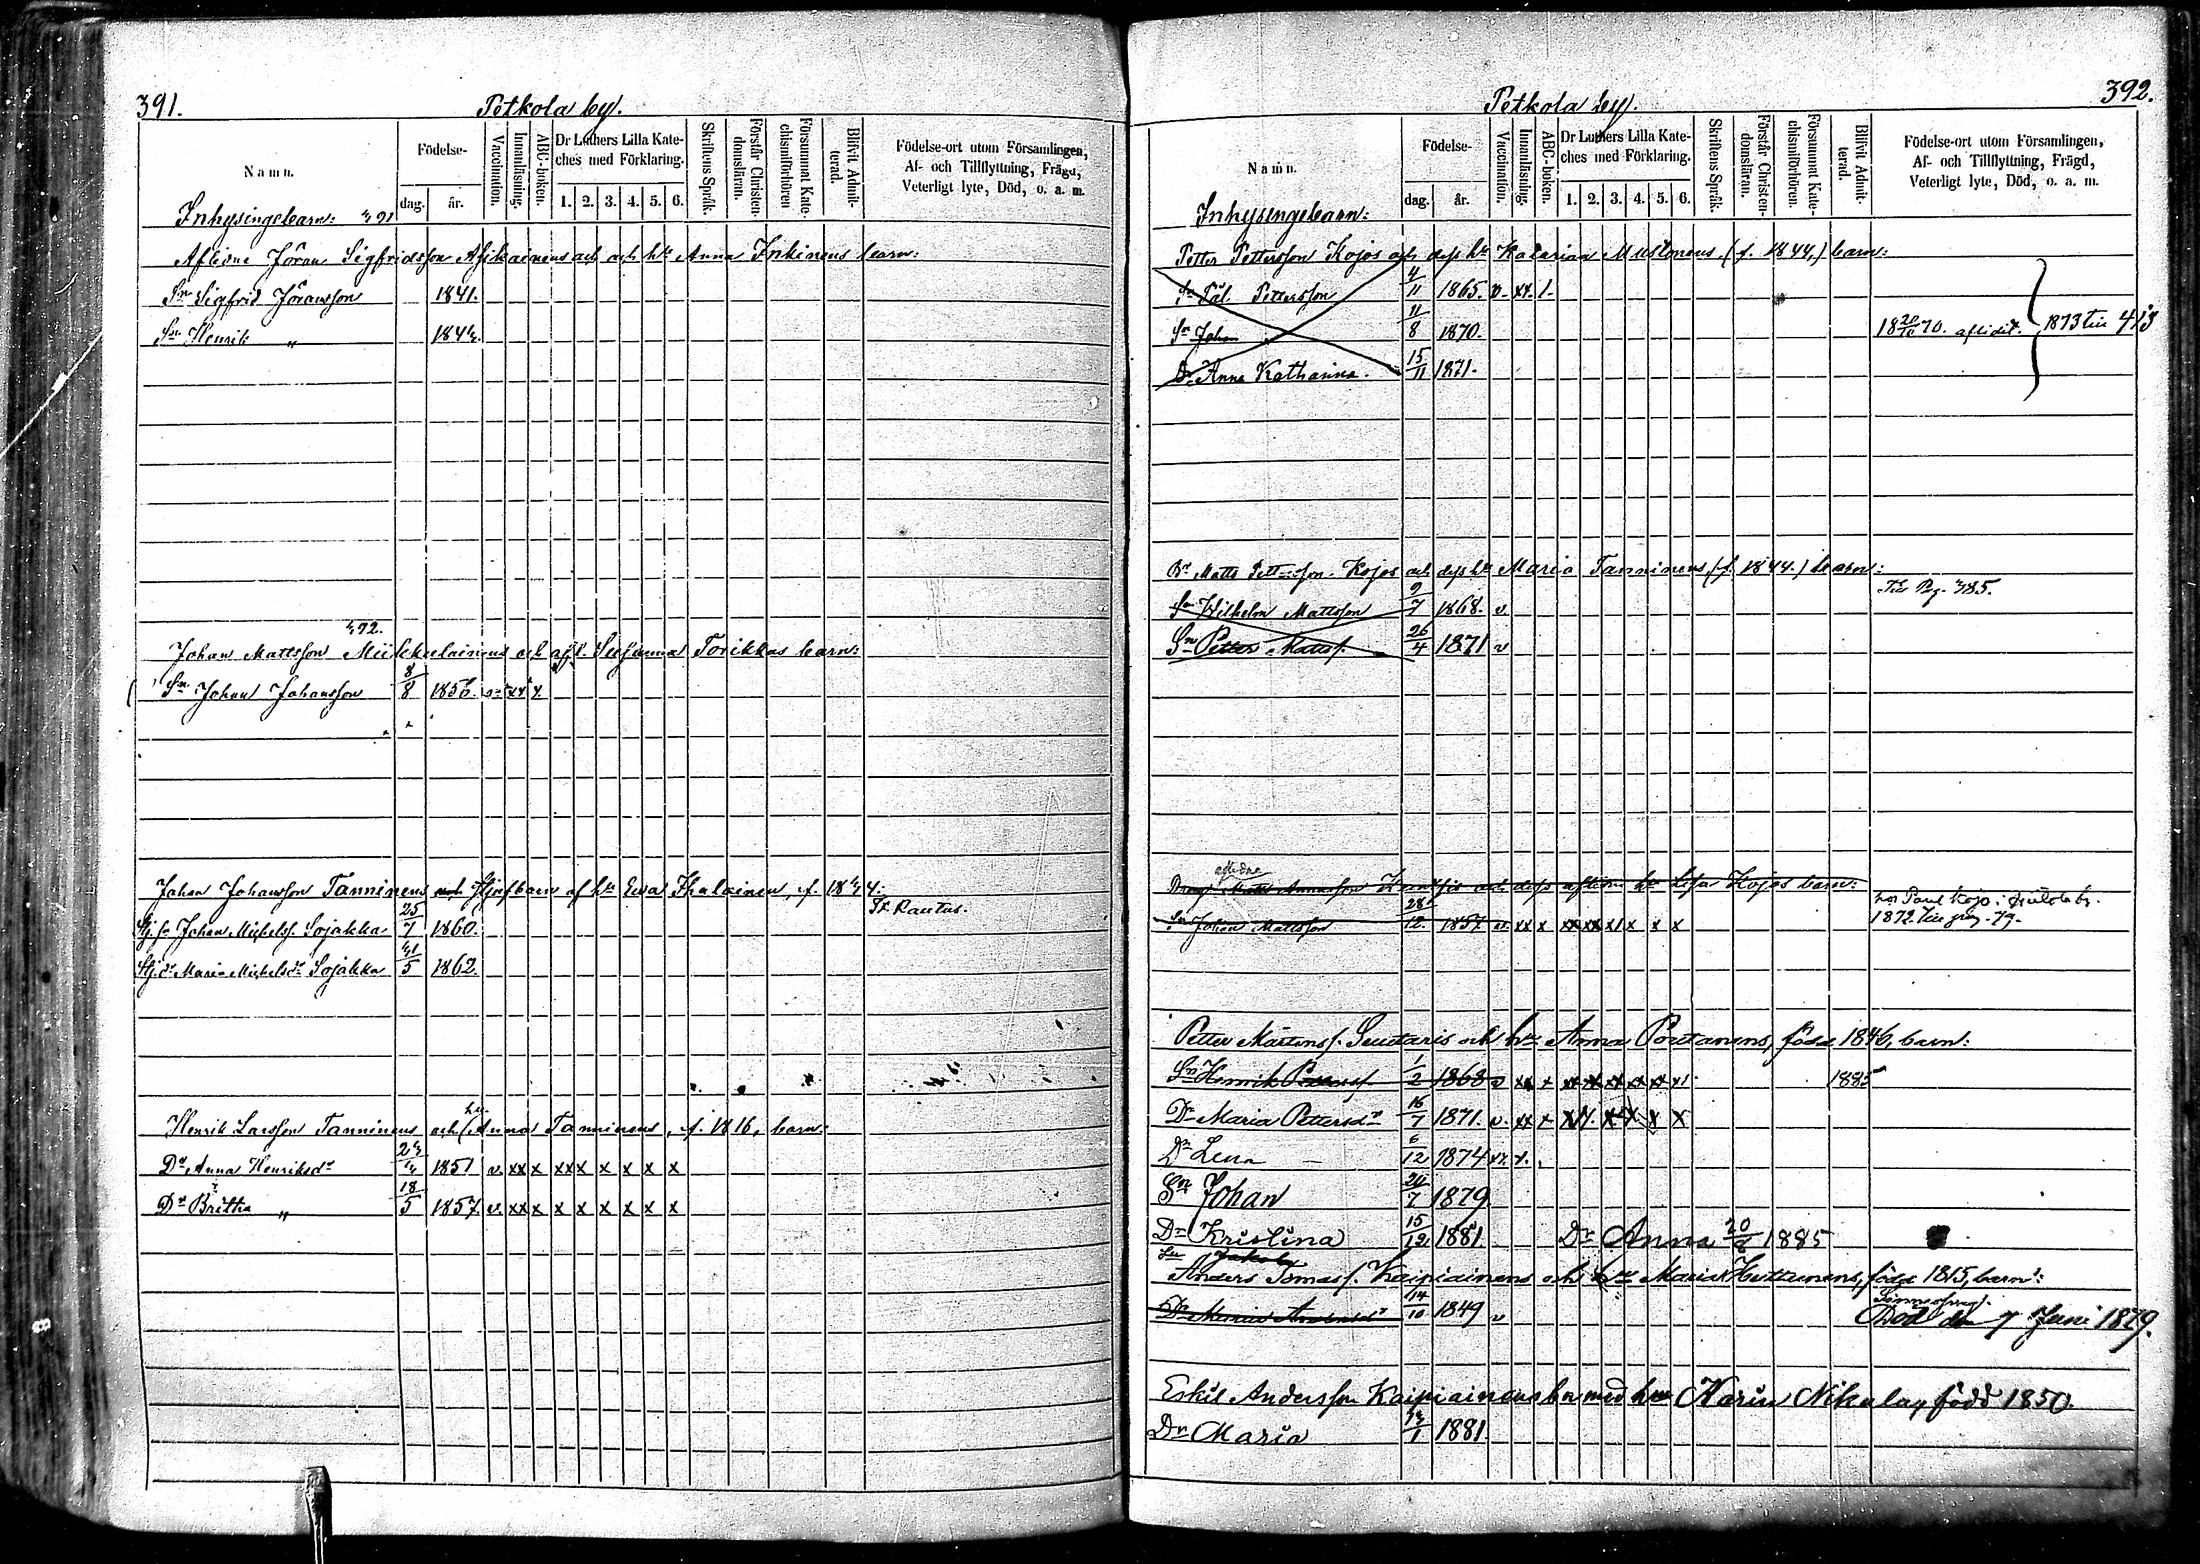 391.
Petkola by.
Namn.
Födelse-
dag.
år.
Vaccination.
Innanläsning.
ABC-boken.
Dr Luthers Lilla Kate-
ches med Förklaring.
1. 2. 3. 4. 5. 6.
Skriftens Språk.
Förstår Christen-
domsläran.
Försummat Kate-
chismiförhören
Blifvit Admit-
terad.
Födelse-ort utom Församlingen,
Af- och Tillflyttning, Frägd,
Veterligt lyte, Död, o. a. m.
Inhysingebarn:
Aflidne Jöran Sigfridsson och h:s Anna Inkinens barn:
Sn Sigfrid Jöransson 1841.
Sn Henrik „ 1844.
Johan Mattsson Miikkulainens och Torikkas barn:
Sn Johan Johansson 8/8 1856.
Johan Johansson Tanninens Styfbarn af h:s Eva Ihalainen, f. 1824:
Fr Rautus.
Johan Michelss. Sojakka 25/7 1860.
Maria Michelsdr Sojakka 5 1862.
Henrik Larsson Tanninens och hu Anna Tanninens, f. 1816, barn:
Dr Anna Henriksdr 1851 v. xx x xx x x x x x
Dr Britha „ 18/5 1857 v. xx x x x x x x x
392.
Petkola by.
Namn.
Födelse-
dag.
år.
Vaccination.
Innanläsning.
ABC-boken.
Dr Luthers Lilla Kate-
ches med Förklaring.
1. 2. 3. 4. 5. 6.
Skriftens Språk.
Förstår Christen-
domsläran.
Försummat Kate-
chismiförhören.
Blifvit Admit-
terad.
Födelse-ort utom Församlingen,
Af- och Tillflyttning, Frägd,
Veterligt lyte, Död, o. a. m.
Inhysingebarn:
Petter Pettersson Kojos och dess h:s Katarina Mustonens, (f. 1844,) barn:
Sn Pål Pettersson 4/11 1865. v. xx. 1.
Sn Johan 11/8 1870. 18 20/10 70. aflidit. 1873 till 413
Dr Anna Katharina. 15/11 1871.
Matts Kojos och dess h:s Maria Tanninens (f. 1844.) barn:
Sn Wilhelm Mattsson 9/7 1868. v.
Sn Petter Mattss. 26/4 1871 v
aflidne
Annasson och dess aflidne h:s Lisa Kojos barn:
hos Paul Kojo i
Sn Johan Mattsson 28/12. 1857 v. xx x xx xx x1 x x x
1872 till pag. 79.
Petter Mårtenss. och hu Anna Poutanens, född 1846, barn:
Sn Henrik Petterss. 1/2 1868 v xx x xx xx xx xx xx x1 1885
Dr Maria Pettersdr 16/7 1871. v. xx x
Dr Lena — 6/12 1874
Sn Johan 7 1879
Dr Kristina 15/12 1881
Dr Anna 20 1885
Anders Tomass. Kaipiainens och hu Maria Huttunens, född 1815, barn:
Dr Maria Andersdr 14/10 1849 v
Död den 7 Juni 1879.
Eskil Andersson Kaipiainens bn med hu Karin Nikulay född 1850.
Dr Maria 1881.